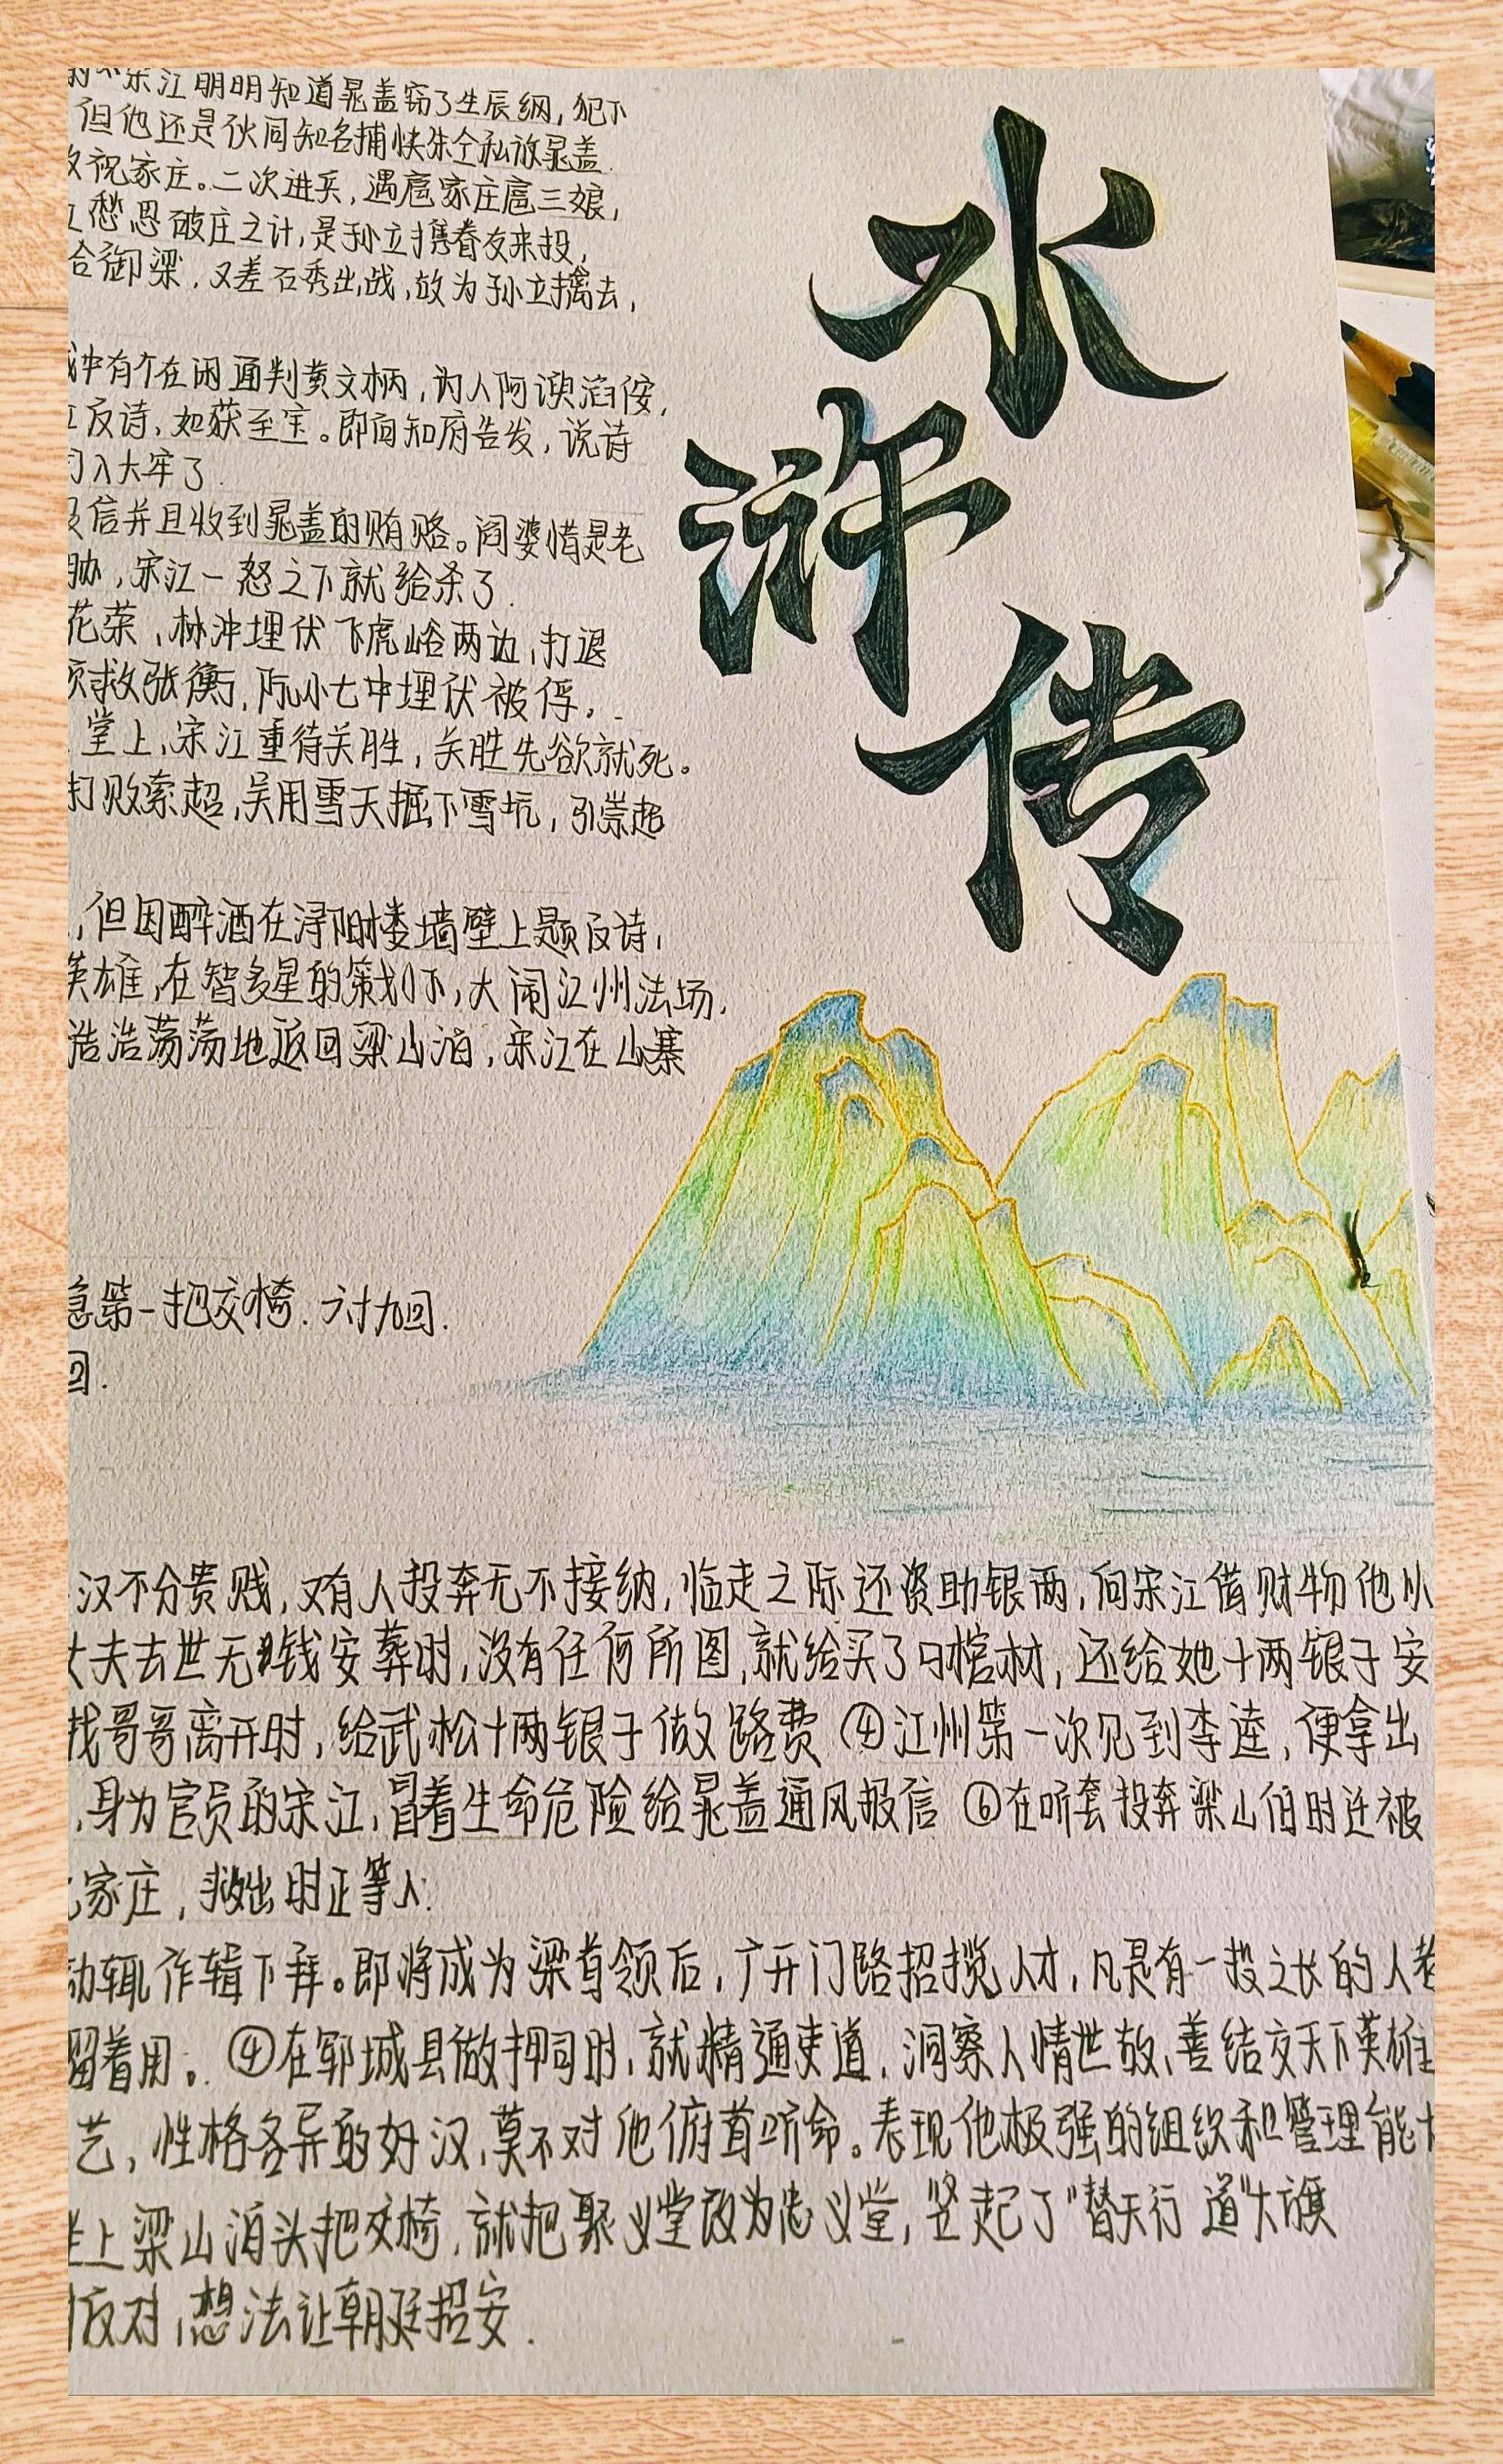 宋江明明知道晁盖窃了生辰纲，犯下
但他还是伙同知名捕快朱仝私放晁盖.
攻祝家庄。二次进兵，遇扈家庄扈三娘，
愁思破庄之计，是孙立携眷友来投，
又差石秀出战，故为孙立擒去，
中有个在闲通判黄文柄，为人阿谀滔侫，
反诗，如获至宝。即向知府告发，说诗
入大牢了.
信并且收到晁盖的贿赂。阎婆惜是老
胁，宋江一怒之下就给杀了.
花荣，林冲埋伏飞虎峪两边，打退
救张衡，阮小七中埋伏被俘，
堂上，宋江重待关胜，关胜先欲就死。
打败索超，吴用雪天掘下雪坑，引崇超
，但因醉酒在浔阳楼墙壁上题反诗，
英雄，在智多星的策划下，大闹江州法场，
浩浩荡荡地返回梁山泊，宋江在山寨
第一把交椅. 六十九回.
回.
水
浒
传
汉不分贵贱，又有人投奔无不接纳，临走之际还资助银两，向宋江借财物他从
丈夫去世无钱安葬时，没有任何所图，就给买了口棺材，还给她十两银子安
找哥哥离开时，给武松十两银子做路费 ④江州第一次见到李逵，便拿出
，身为官员的宋江，冒着生命危险给晁盖通风报信 ⑥在听套投奔梁山伯时迁被
家庄，救出时正等人.
动辄作辑下拜。即将成为梁首领后，广开门路招揽人才，凡是有一投之长的人
留着用。④在郓城县做押司时，就精通吏道，洞察人情世故、善结交天下英雄
艺，性格各异的好汉，莫不对他俯首听命。表现他极强的组织和管理能
坐上梁山泊头把交椅，就把聚义堂改为忠义堂，竖起了“替天行道”大旗
反对，想法让朝廷招安.